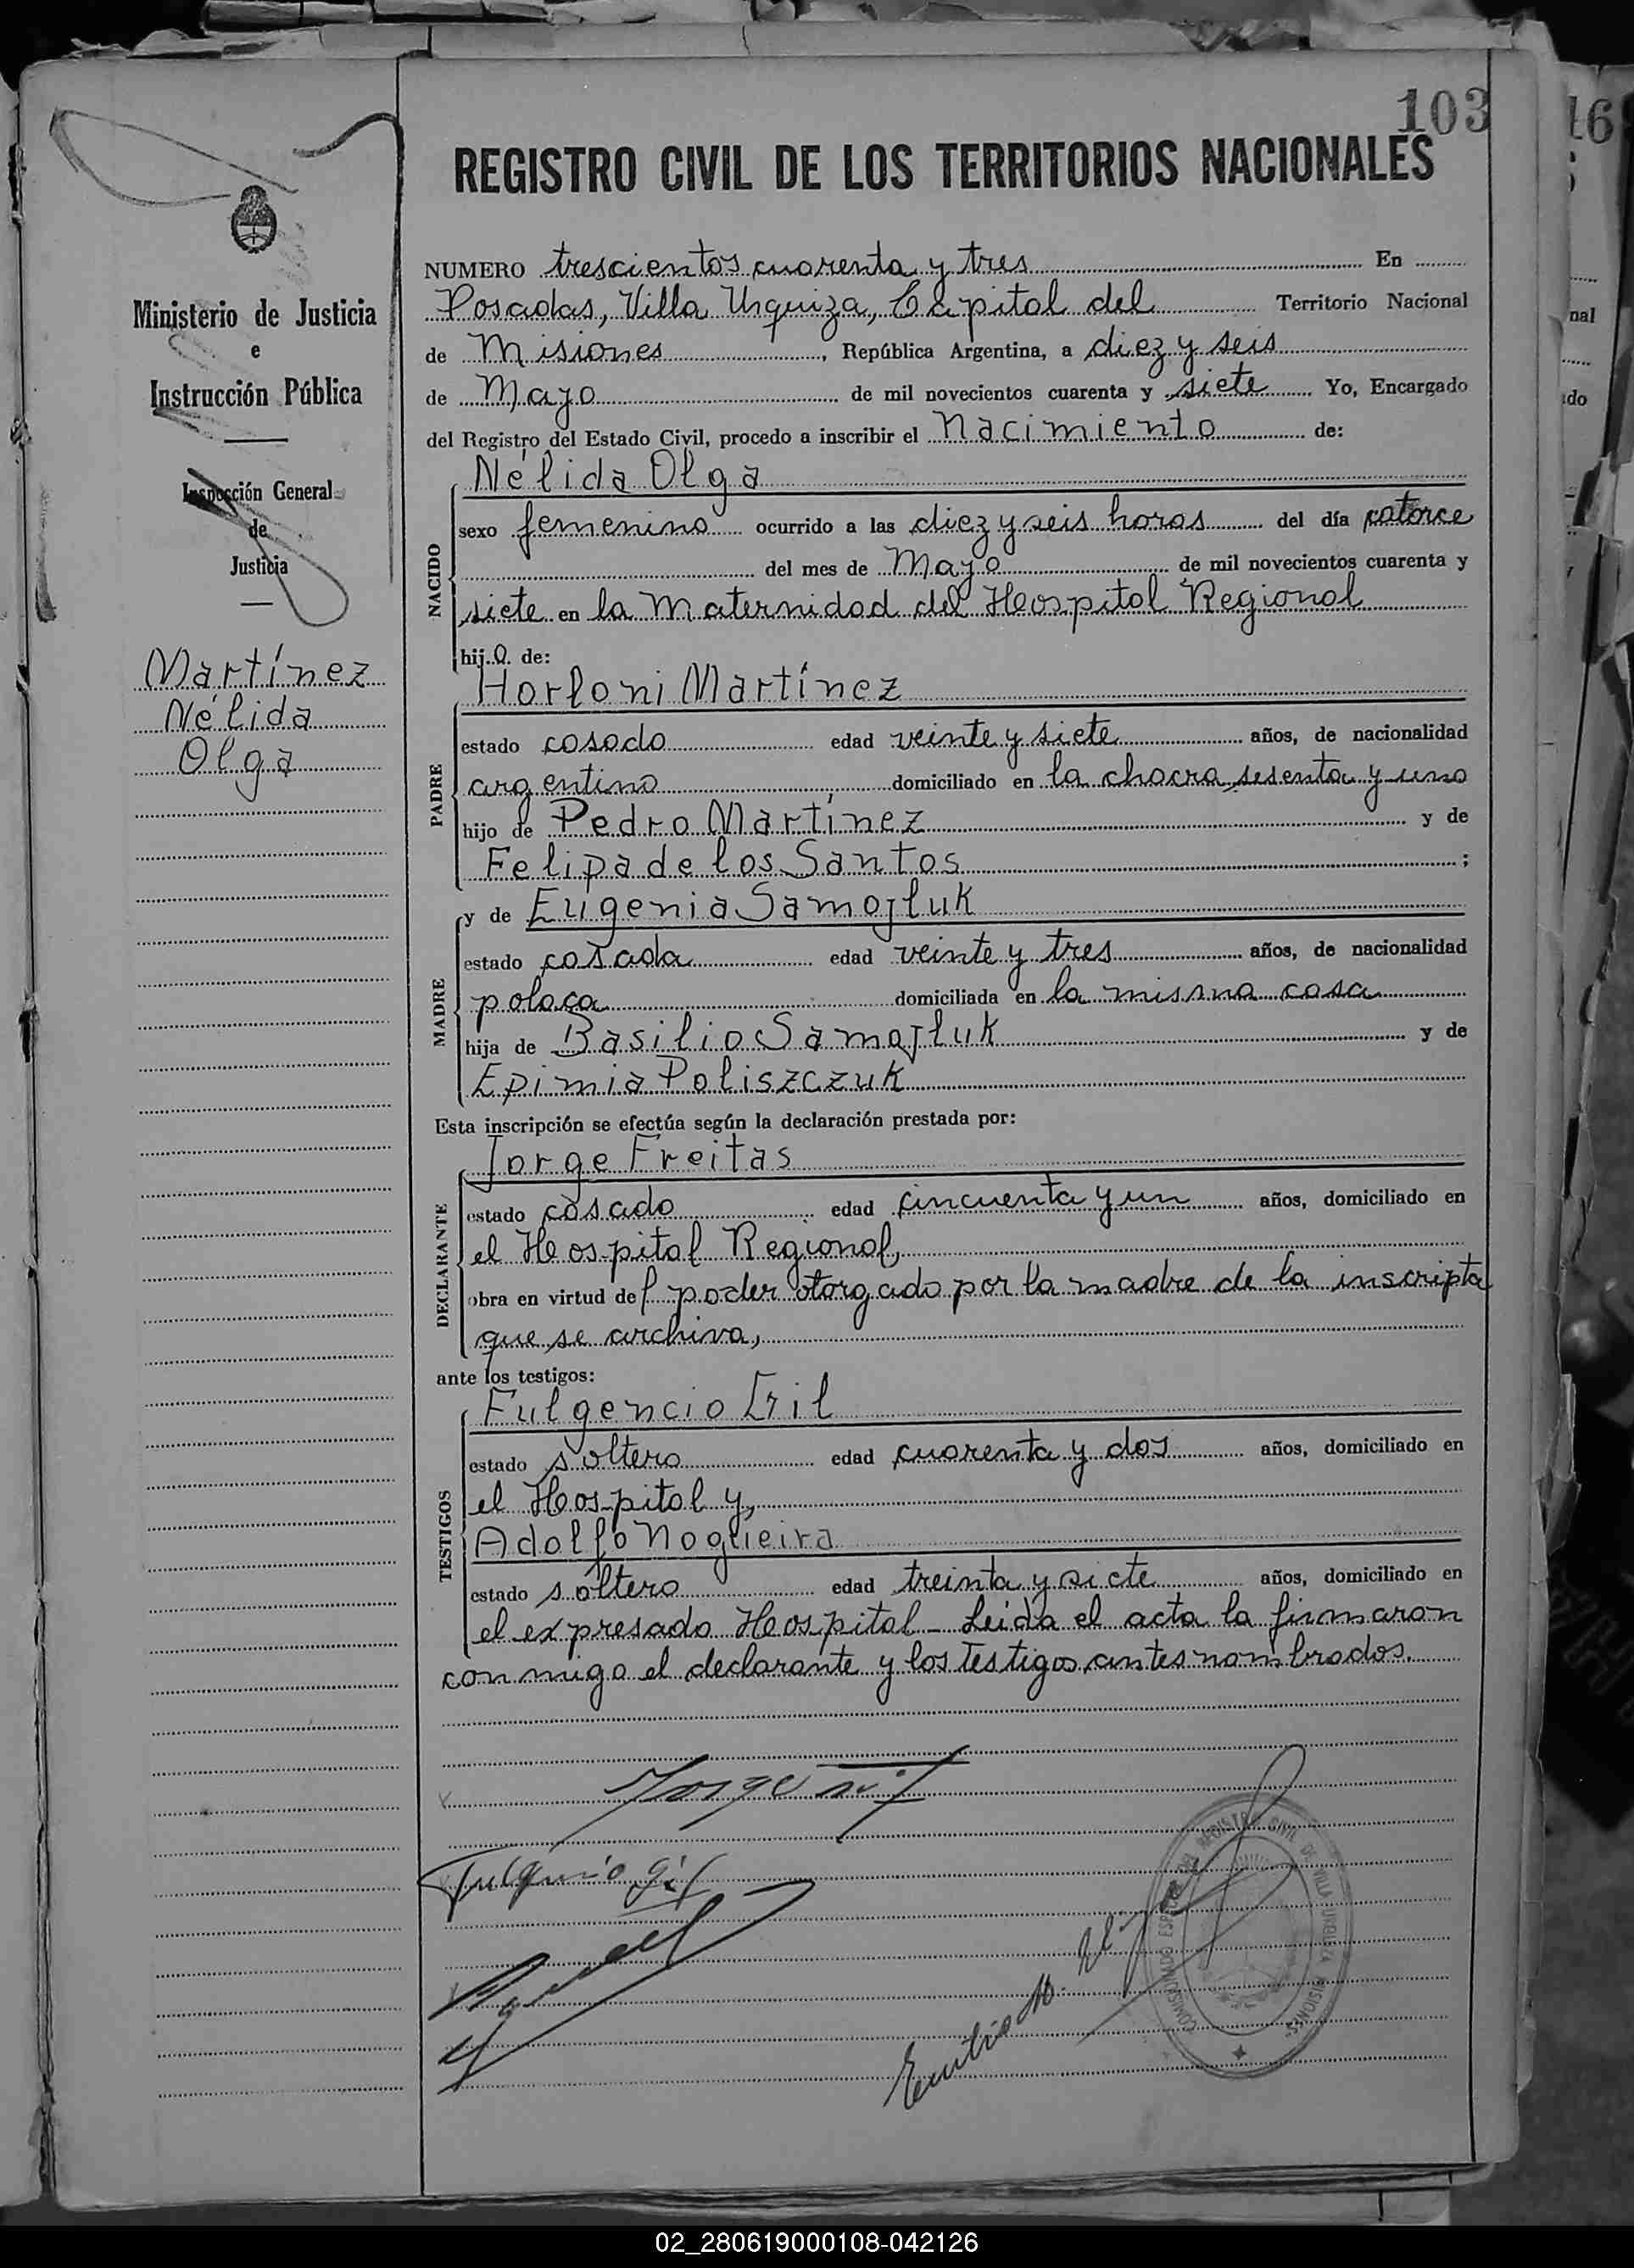 103
REGISTRO CIVIL DE LOS TERRITORIOS NACIONALES
NUMERO trescientos cuarenta y tres En
Posadas, Villa Urquiza, Capital del Territorio Nacional
de Misiones, República Argentina, a diez y seis
de Mayo de mil novecientos cuarenta y siete Yo, Encargado
del Registro del Estado Civil, procedo a inscribir el Nacimiento de:
Ministerio de Justicia
e
Instrucción Pública
Inspección General
de
Justicia
Martínez
Nélida
Olga
NACIDO
Nélida Olga
sexo femenino ocurrido a las diez y seis horas del día catorce
del mes de Mayo de mil novecientos cuarenta y
siete en la Maternidad del Hospital Regional
hija de:
PADRE
Horloni Martínez
estado casado edad veinte y siete años, de nacionalidad
argentino domiciliado en la chacra sesenta y uno
hijo de Pedro Martínez y de
Felipa de los Santos ;
MADRE
y de Eugenia Samojluk
estado casada edad veinte y tres años, de nacionalidad
polaca domiciliada en la misma casa
hija de Basilio Samojluk y de
Epimia Poliszczuk
Esta inscripción se efectúa según la declaración prestada por:
DECLARANTE
Jorge Freitas
estado casado edad cincuenta y un años, domiciliado en
el Hospital Regional,
obra en virtud del poder otorgado por la madre de la inscripta
que se archiva,
ante los testigos:
TESTIGOS
Fulgencio
estado soltero edad cuarenta y dos años, domiciliado en
el Hospital y,
Adolfo Nogueira
estado soltero edad treinta y siete años, domiciliado en
el expresado Hospital - Leida el acta la firmaron
con migo el declarante y los testigos antes nombrados.
Jorge
Fulgencio Gil
Emilio M.
COMISIONADO ESPECIAL DEL REGISTRO CIVIL DE VILLA URQUIZA MISIONES
16
nal
do
02_280619000108-042126